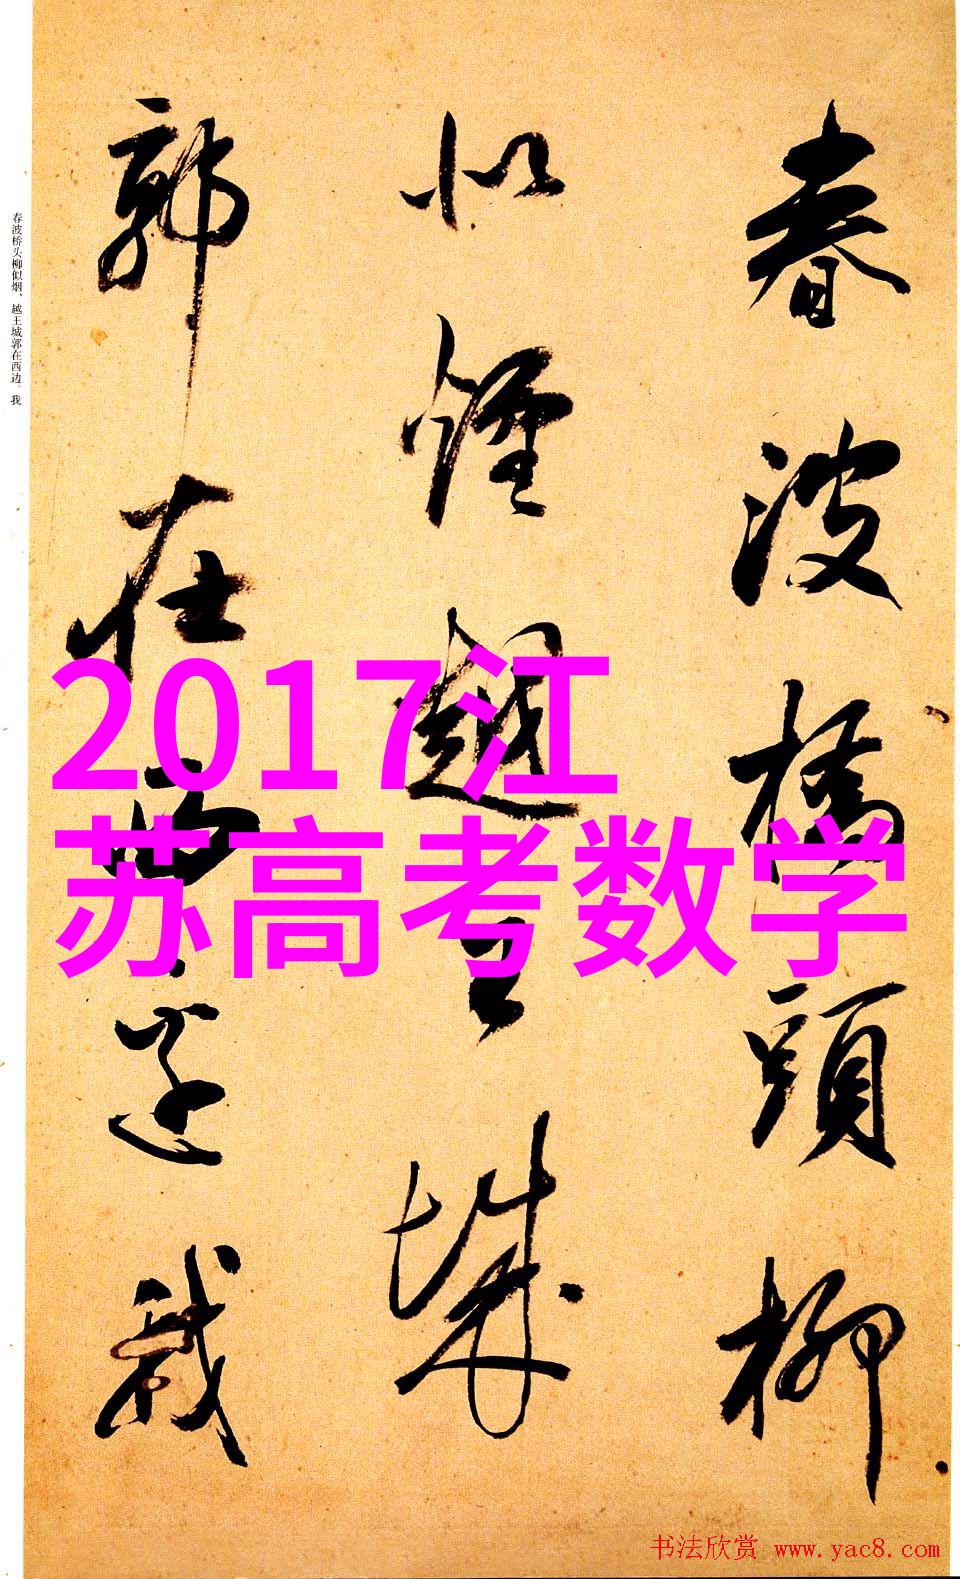 春波橋頭柳
似煙越王城
郭在西邊我
春波桥头柳似烟、越王城郭在西边。我
2017江
苏高考数学
书法欣赏 www.yac8.com